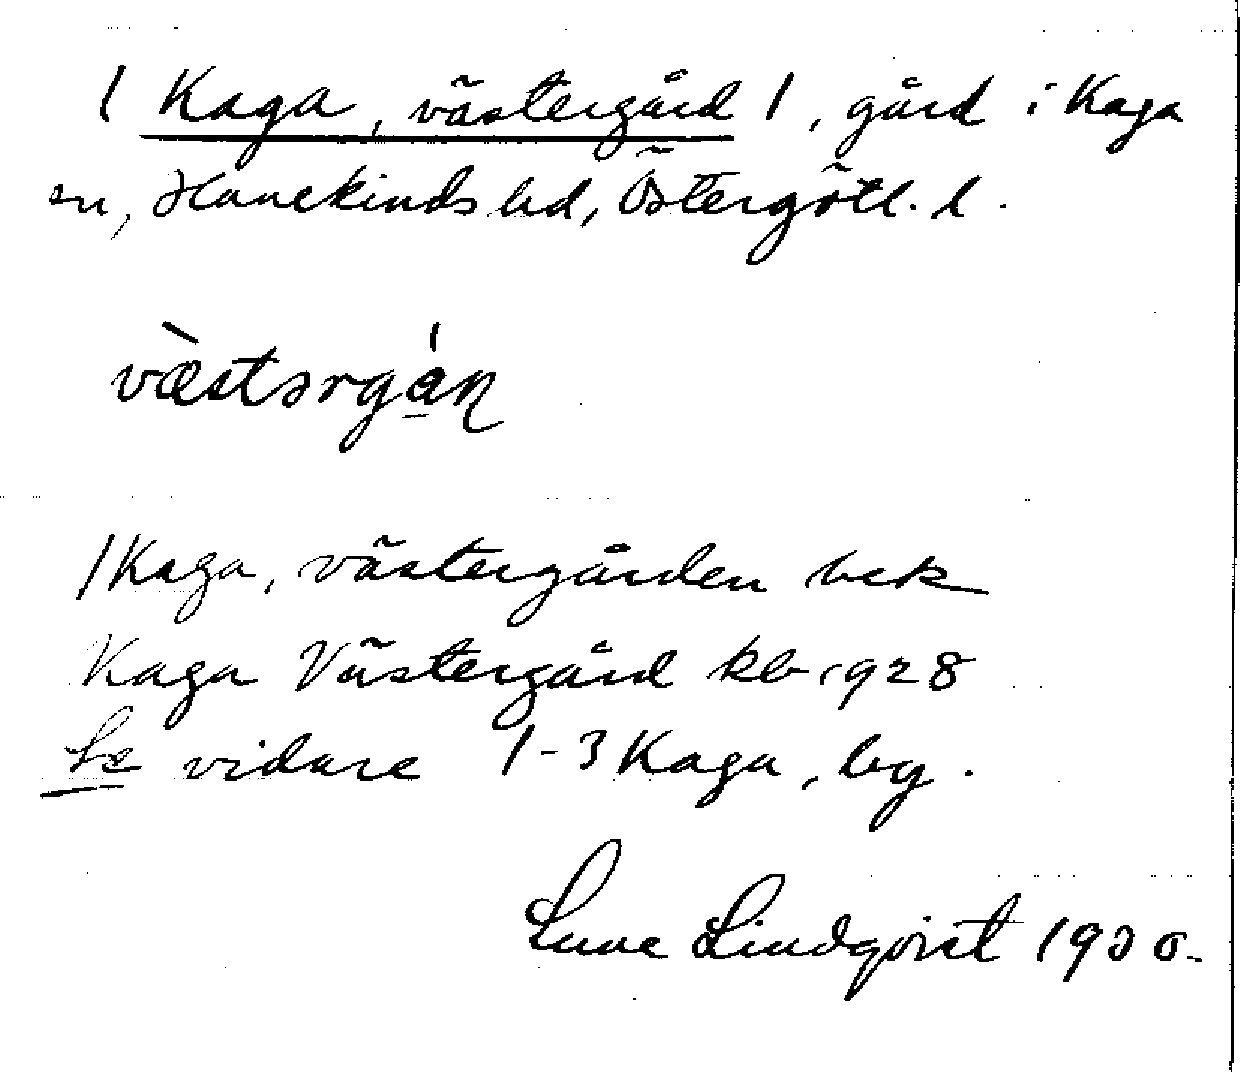 1 Kaga, västergård 1, gård i Kaga
sn, Hanekinds hd, Östergötl. l.
væ̀stərgá̱n
1 Kaga, västergården bek
Kaga Västergård kb 1928
Se vidare 1-3 Kaga, by.
Sune Lindqvist 1930.